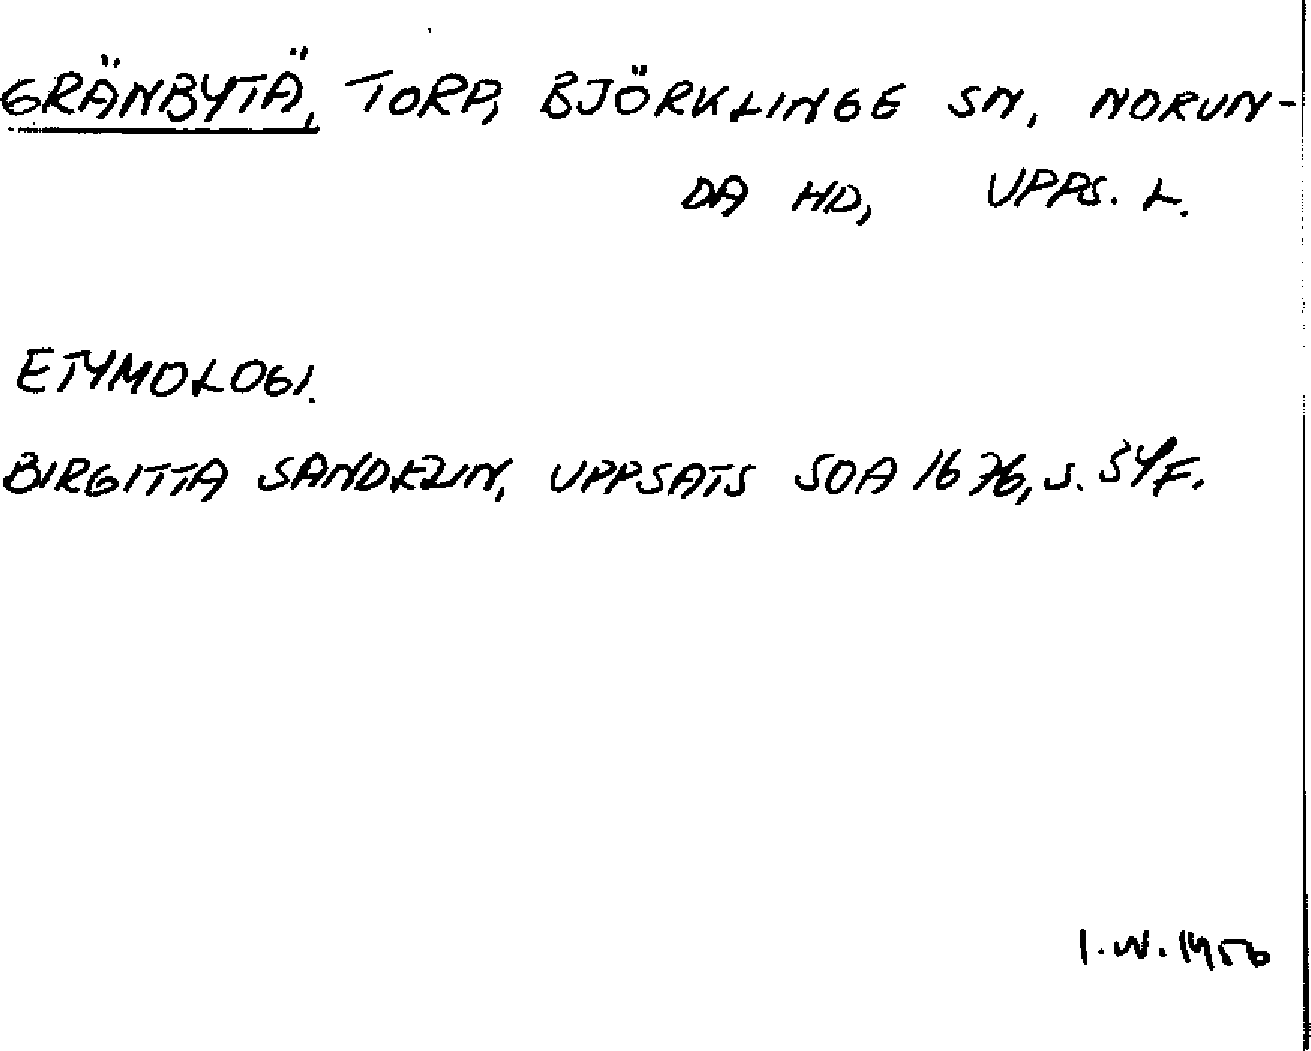 GRÄNBYTÄ, TORP, BJÖRKLINGE SN, NORUN-
DA HD, UPPS. L.
ETYMOLOGI.
BIRGITTA SANDELIN, UPPSATS SOA 1676, S. 54F.
I.W. 1956